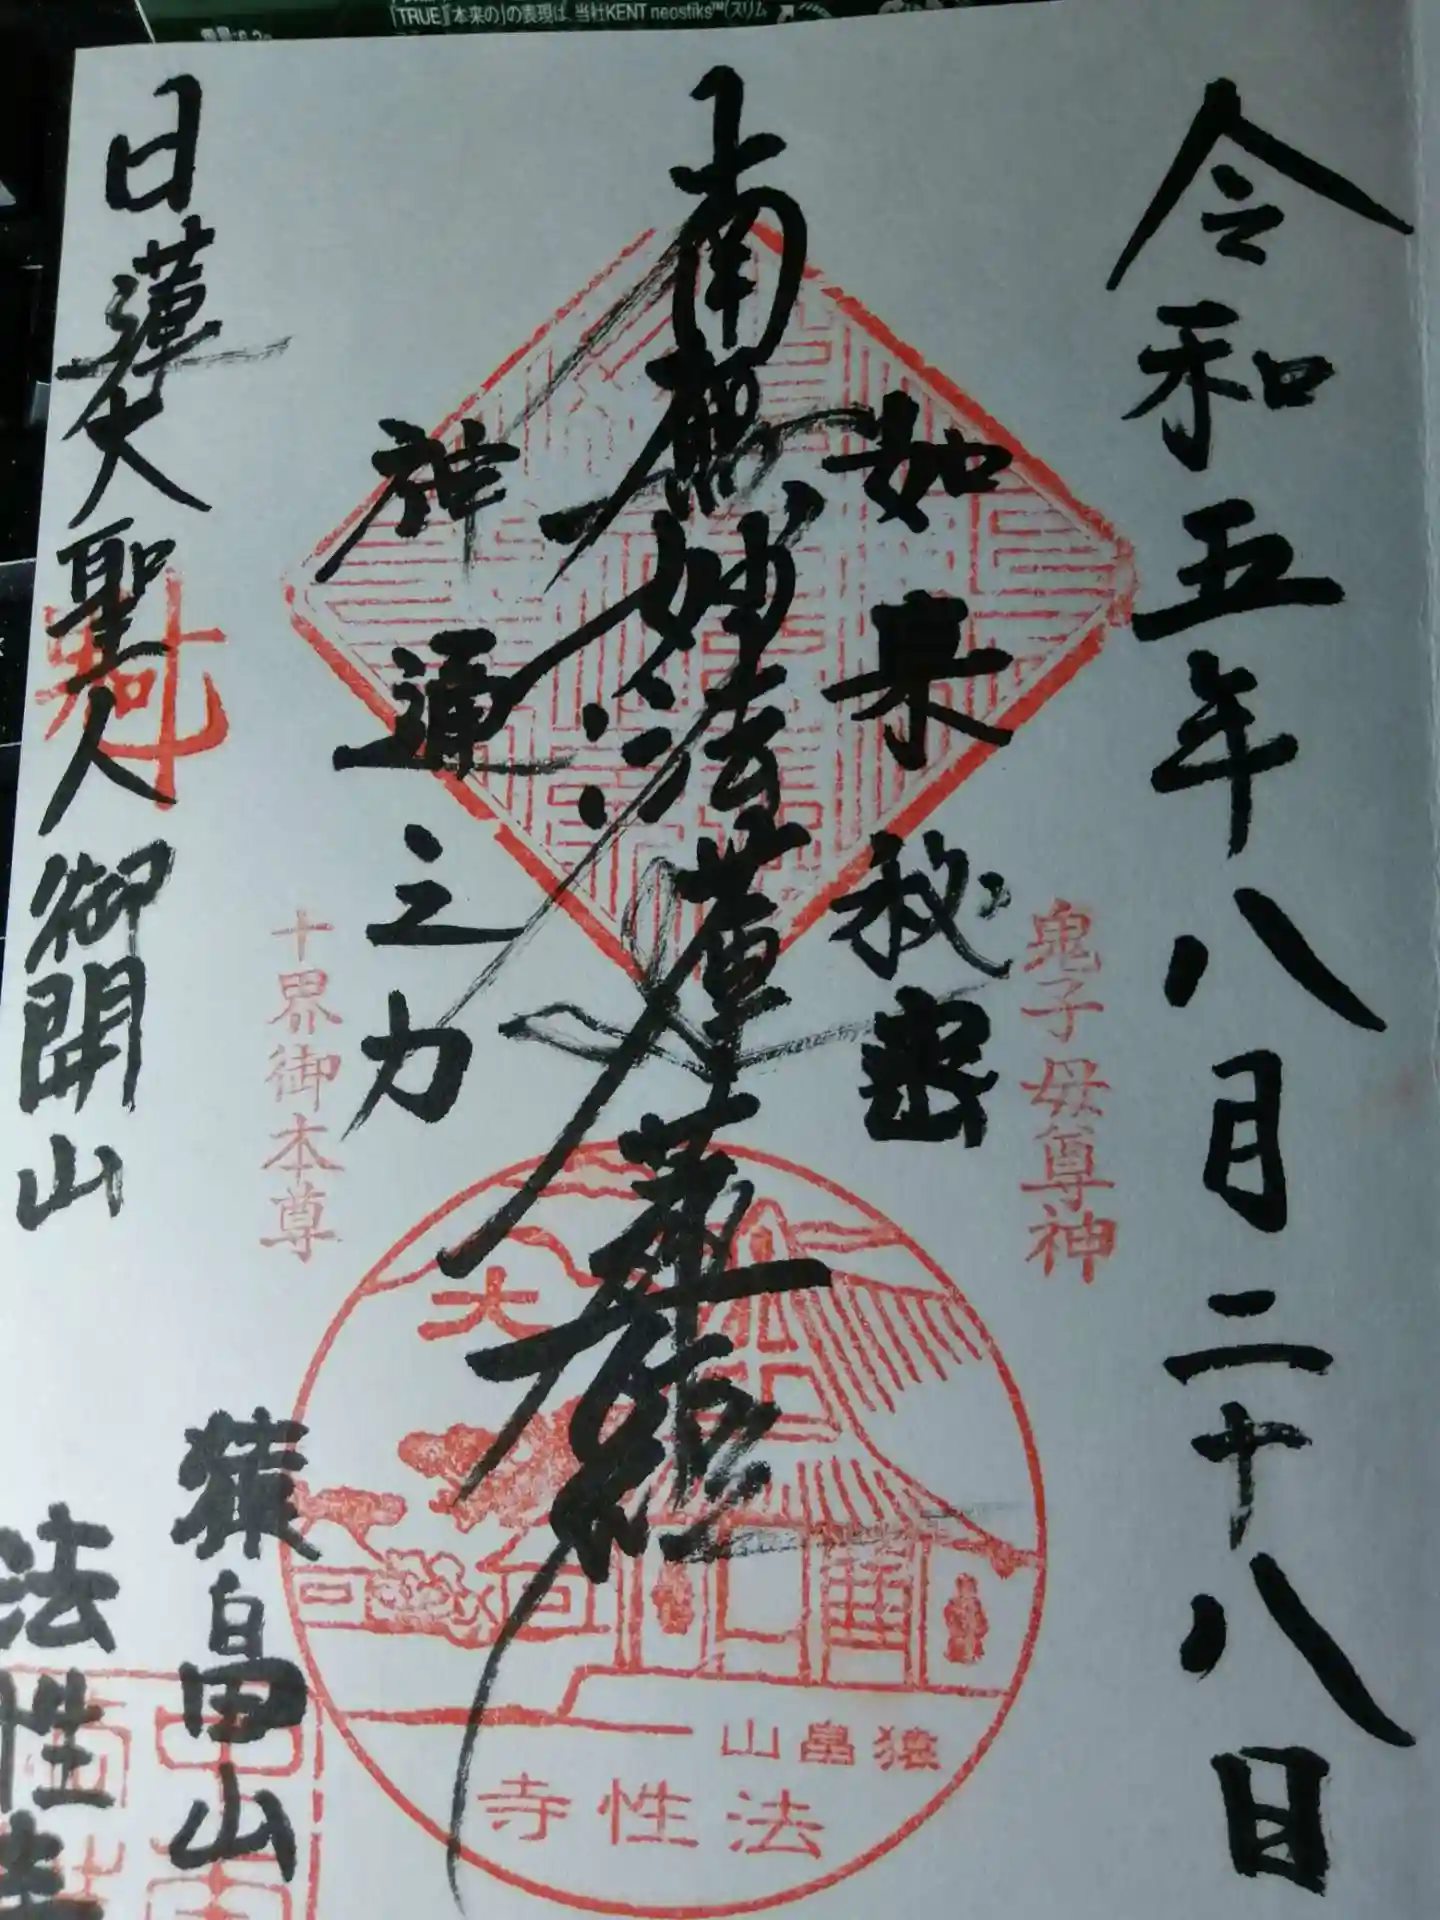 「TRUE」「本来の」の表現は、当社KENT neostiks™(スリム
令和五年八月二十八日
鬼子母尊神
如来秘密
南無妙法蓮華経
神通之力
十界御本尊
大
猿畠山
法性寺
日蓮大聖人御開山
猿畠山
法性寺